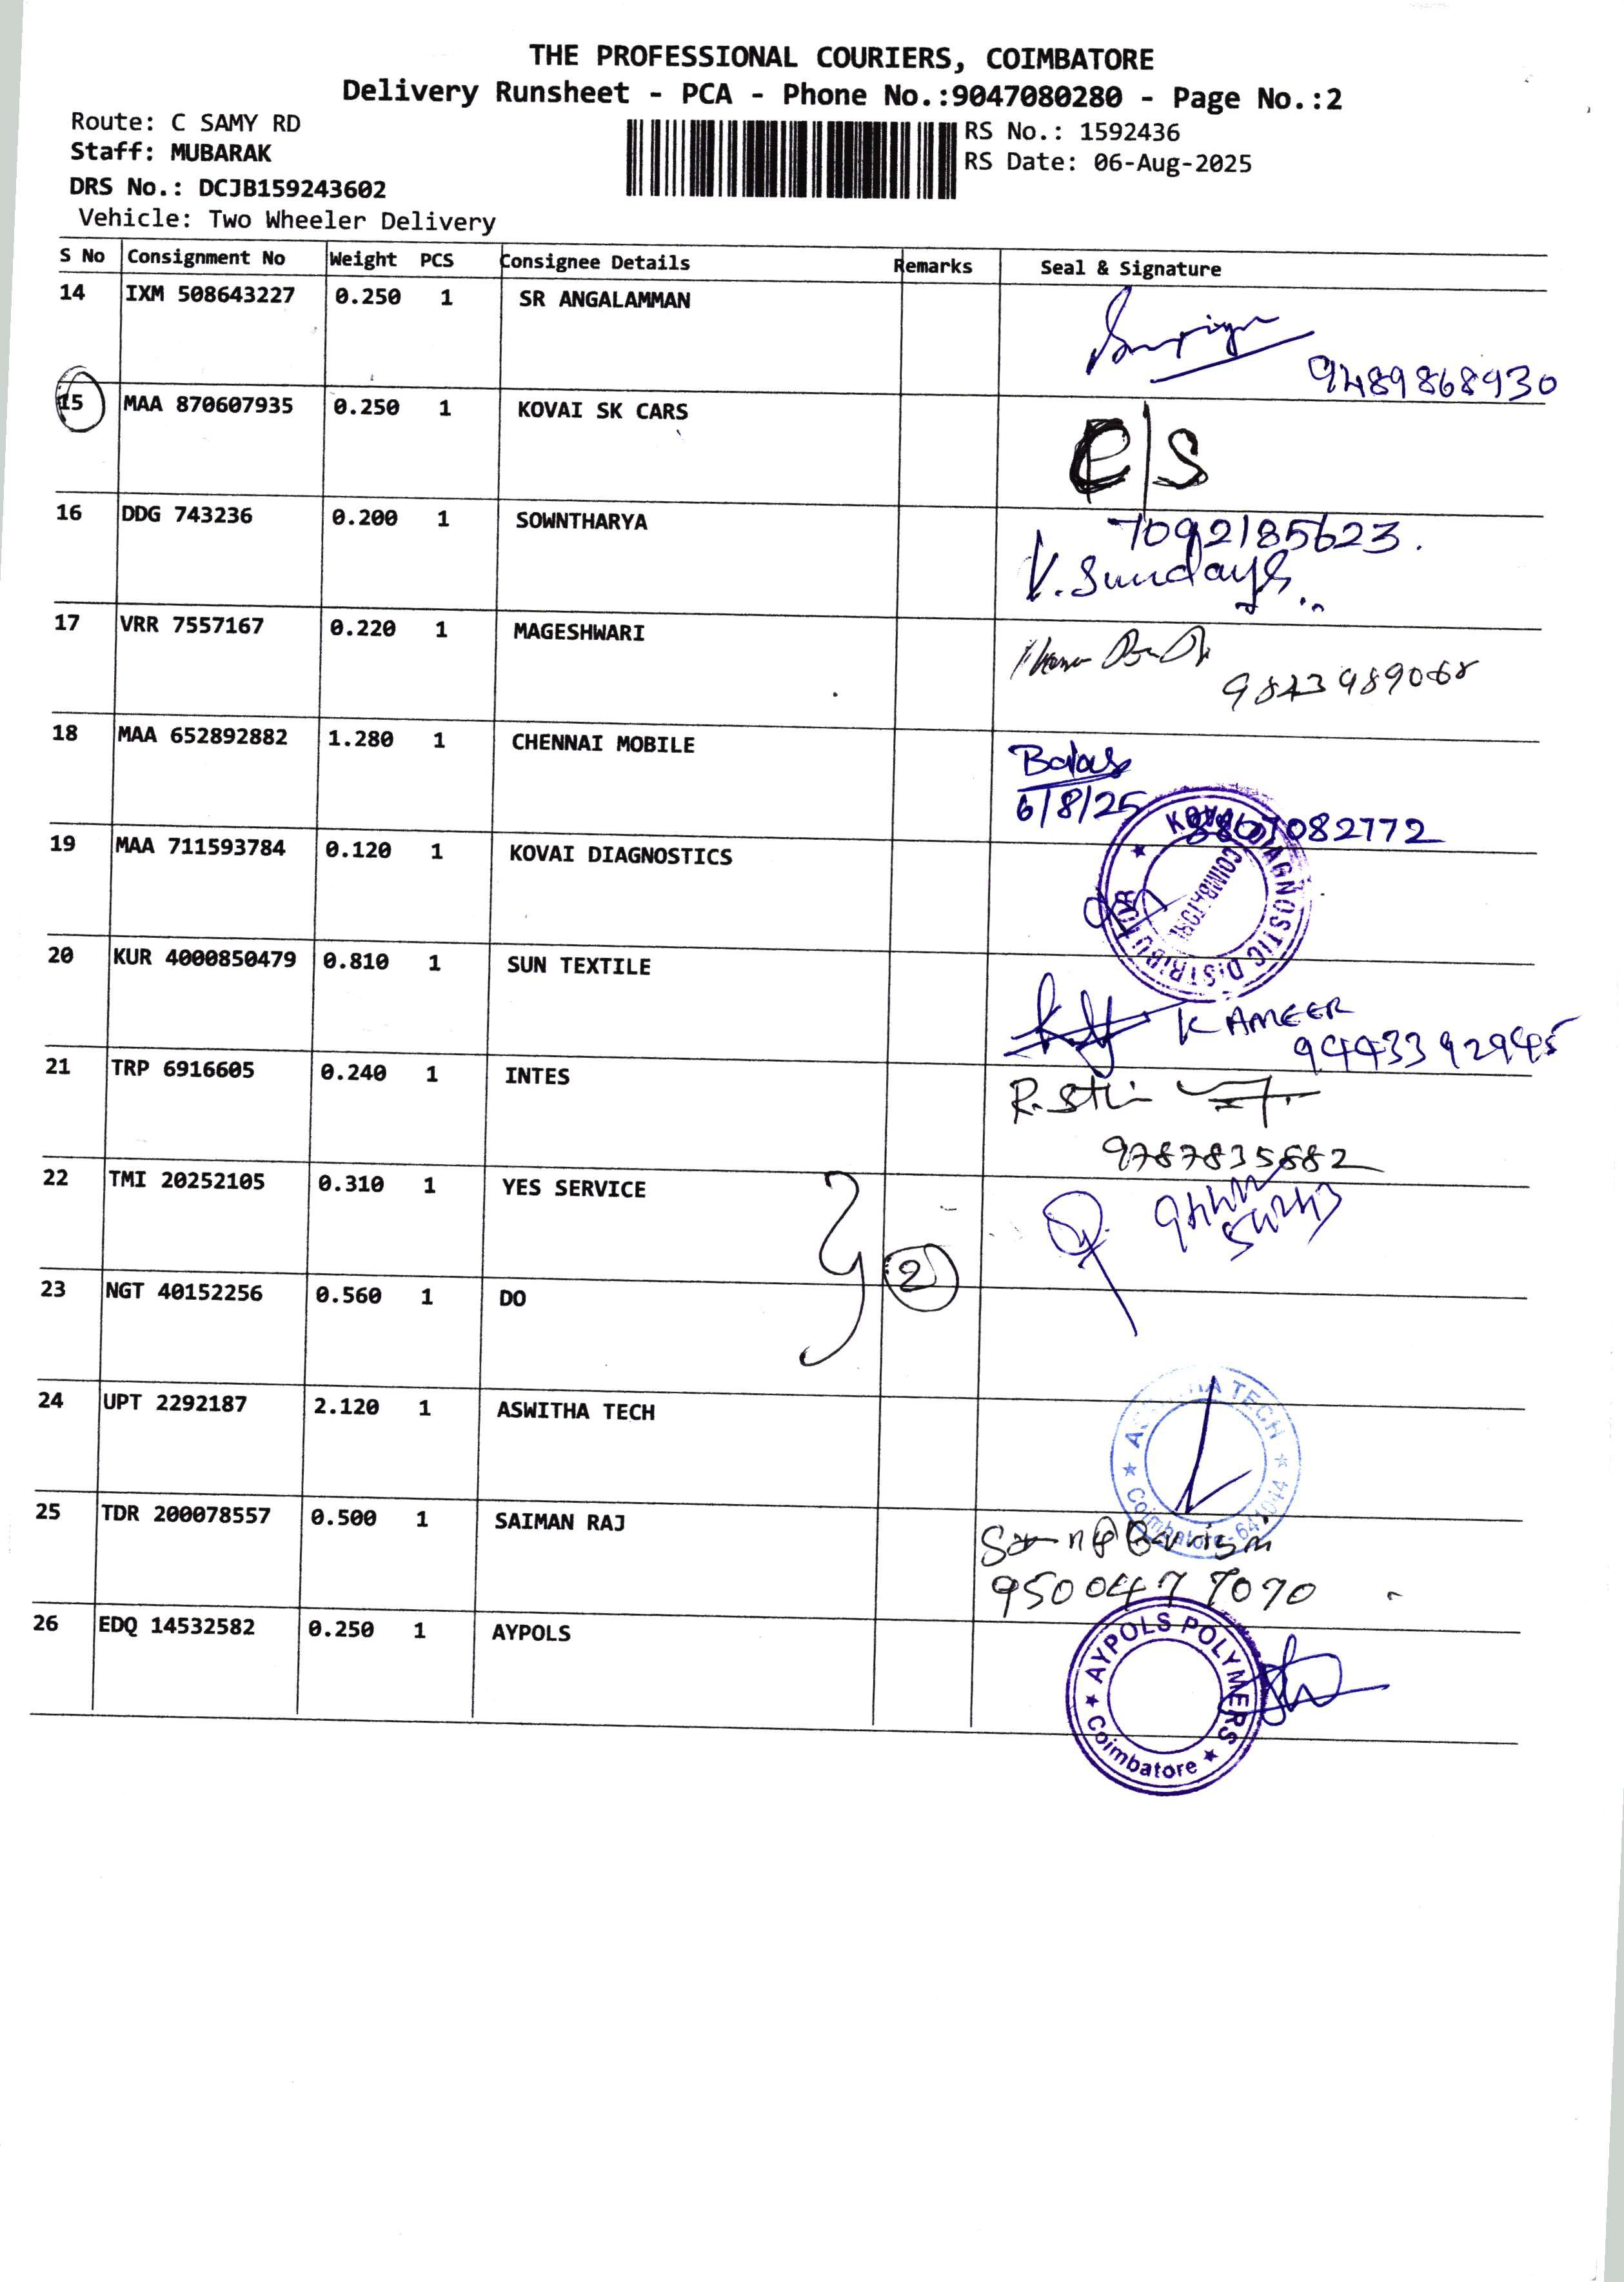 THE PROFESSIONAL COURIERS, COIMBATORE
Delivery Runsheet - PCA - Phone No.:9047080280 - Page No.:2
Route: C SAMY RD
RS No.: 1592436
Staff: MUBARAK
RS Date: 06-Aug-2025
DRS No.: DCJB159243602
Vehicle: Two Wheeler Delivery
S No Consignment No Weight PCS Consignee Details Remarks Seal & Signature
14 IXM 508643227 0.250 1 SR ANGALAMMAN
9489868930
15 MAA 870607935 0.250 1 KOVAI SK CARS
C/S
16 DDG 743236 0.200 1 SOWNTHARYA
7092185623.
V.
17 VRR 7557167 0.220 1 MAGESHWARI
18 MAA 652892882 1.280 1 CHENNAI MOBILE
6/8/25
19 MAA 711593784 0.120 1 KOVAI DIAGNOSTICS
KOVAI DIAGNOSTIC DISTRIBUTOR
COIMBATORE
20 KUR 4000850479 0.810 1 SUN TEXTILE
K AMEER
21 TRP 6916605 0.240 1 INTES
9787835882
22 TMI 20252105 0.310 1 YES SERVICE
2
23 NGT 40152256 0.560 1 DO
24 UPT 2292187 2.120 1 ASWITHA TECH
TECH
Coimbatore-641044
25 TDR 200078557 0.500 1 SAIMAN RAJ
9500477070
26 EDQ 14532582 0.250 1 AYPOLS
AYPOLS POLYMERS
Coimbatore